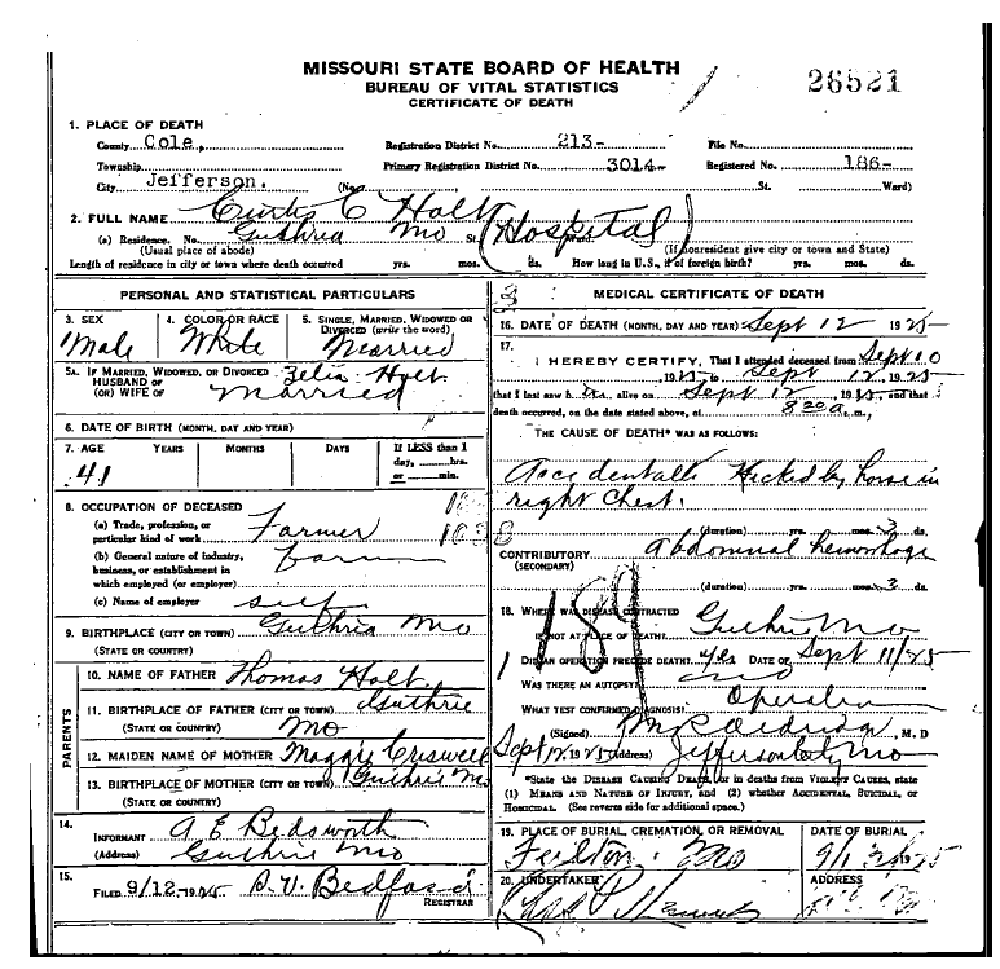 MISSOURI STATE BOARD OF HEALTH
BUREAU OF VITAL STATISTICS
CERTIFICATE OF DEATH
26521
1. PLACE OF DEATH
County Cole, Registration District No. 213- File No.
Township Primary Registration District No. 3014- Registered No. 186-
City Jefferson. (No. , St. Ward)
2. FULL NAME Curtis C Holt
(a) Residence. No. Guthrie Mo St. (Hospital) Ward.
(Usual place of abode) (If nonresident give city or town and State)
Length of residence in city or town where death occurred yrs. mos. ds. How long in U.S., if of foreign birth? yrs. mos. ds.
PERSONAL AND STATISTICAL PARTICULARS
3. SEX 4. COLOR OR RACE 5. SINGLE, MARRIED, WIDOWED OR DIVORCED (write the word)
Male White Married
5A. IF MARRIED, WIDOWED, OR DIVORCED Zelia Holt
HUSBAND OF
(OR) WIFE OF Married
6. DATE OF BIRTH (MONTH, DAY AND YEAR)
7. AGE YEARS MONTHS DAYS If LESS than 1 day, hrs. or min.
41
8. OCCUPATION OF DECEASED
(a) Trade, profession, or particular kind of work Farmer
(b) General nature of industry, business, or establishment in which employed (or employer) Farm
(c) Name of employer self
9. BIRTHPLACE (CITY OR TOWN) Guthrie Mo
(STATE OR COUNTRY)
PARENTS
10. NAME OF FATHER Thomas Holt
11. BIRTHPLACE OF FATHER (CITY OR TOWN) Guthrie
(STATE OR COUNTRY) Mo
12. MAIDEN NAME OF MOTHER Maggie Criswell
13. BIRTHPLACE OF MOTHER (CITY OR TOWN) Guthrie Mo
(STATE OR COUNTRY)
14.
INFORMANT A E Bedsworth
(Address) Guthrie Mo
15.
FILED 9/12, 1925 S. V. Bedford
REGISTRAR
MEDICAL CERTIFICATE OF DEATH
16. DATE OF DEATH (MONTH, DAY AND YEAR) Sept 12 1925
17.
I HEREBY CERTIFY, That I attended deceased from Sept 10
, 1925 to Sept 12, 1925
that I last saw h alive on Sept 12, 1925, and that
death occurred, on the date stated above, at 8 20 a m.,
THE CAUSE OF DEATH* WAS AS FOLLOWS:
Accidentally Kicked by horse in
right Chest.
(duration) yrs. mos. 3 ds.
CONTRIBUTORY Abdominal hemorrhage
(SECONDARY)
(duration) yrs. mos. 3 ds.
189
18. WHERE WAS DISEASE CONTRACTED
IF NOT AT PLACE OF DEATH? Guthrie Mo
DID AN OPERATION PRECEDE DEATH? yes DATE OF Sept 11/25
WAS THERE AN AUTOPSY? no
WHAT TEST CONFIRMED DIAGNOSIS? Operation
(Signed) , M. D
Sept 12, 1925 (Address) Jefferson City Mo
*State the DISEASE CAUSING DEATH, or in deaths from VIOLENT CAUSES, state
(1) MEANS AND NATURE OF INJURY, and (2) whether ACCIDENTAL, SUICIDAL, or
HOMICIDAL. (See reverse side for additional space.)
19. PLACE OF BURIAL, CREMATION, OR REMOVAL DATE OF BURIAL
Fulton Mo 9/13/1925
20. UNDERTAKER ADDRESS